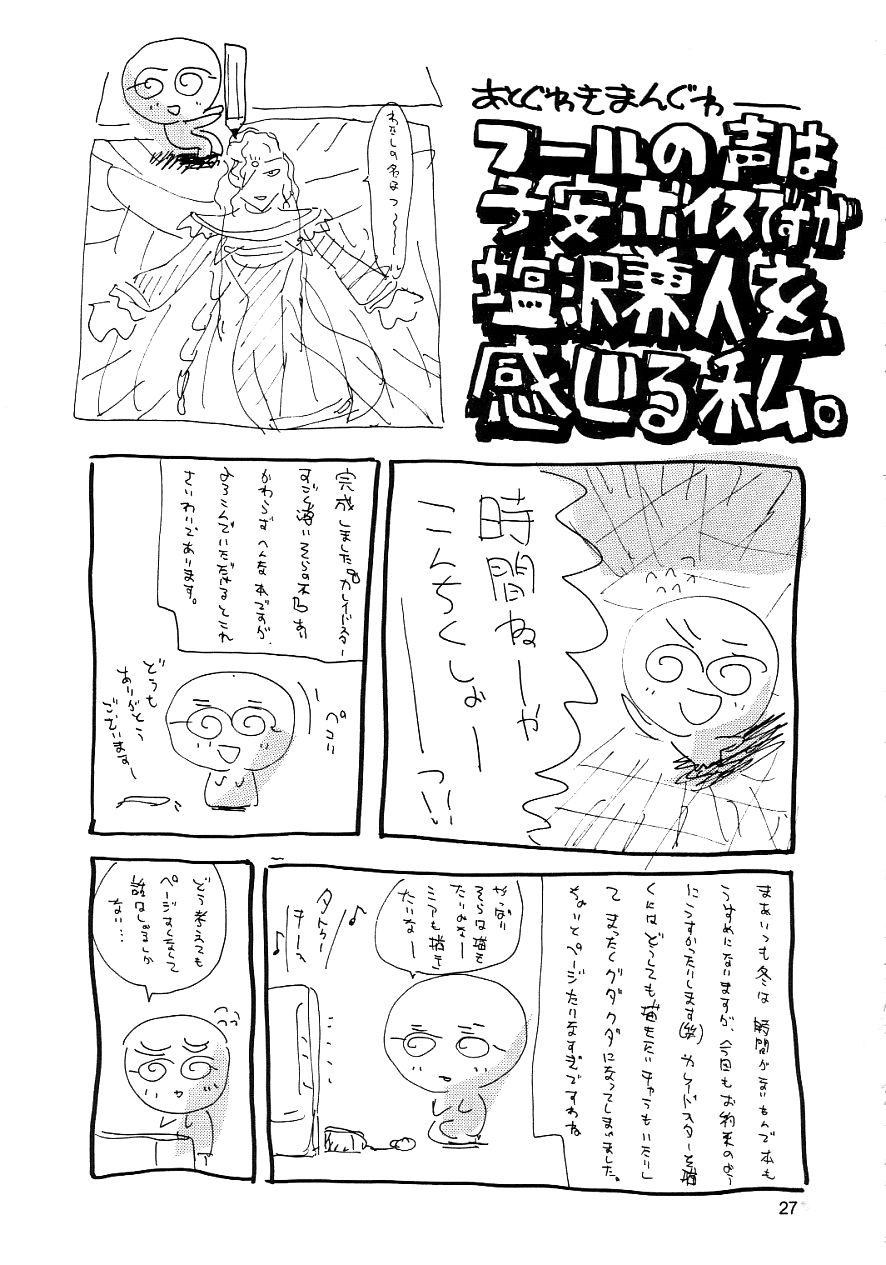 あとぐわきまんぐわ――
フールの声は
子安ボイスですが
塩沢兼人を、
感じる私。
わたしの名はフ〜〜〜
時間ねーや
こんちくしょー
――っ!!
完成しました。カレイドスター
すごく薄いそらの本。あ
かわらずへんな本ですが、
よろこんでいただけるとこれ
さいわいであります。
ペコリ
どうも
ありがとう
ございます―
まあいつも冬は時間がないもんで本も
うすめになりますが、今回もお約束のよー
にこうすかったりします(笑)カレイドスターを描
くにはどうしても描きたいキャラもいたりし
てまったくグダグダになってしまいました。
ちょいとページたりなすぎですわね
やっぱり
そらは描き
たいわなー
ミアも描き
たいなー
どう考えても
ページ
ない…
27